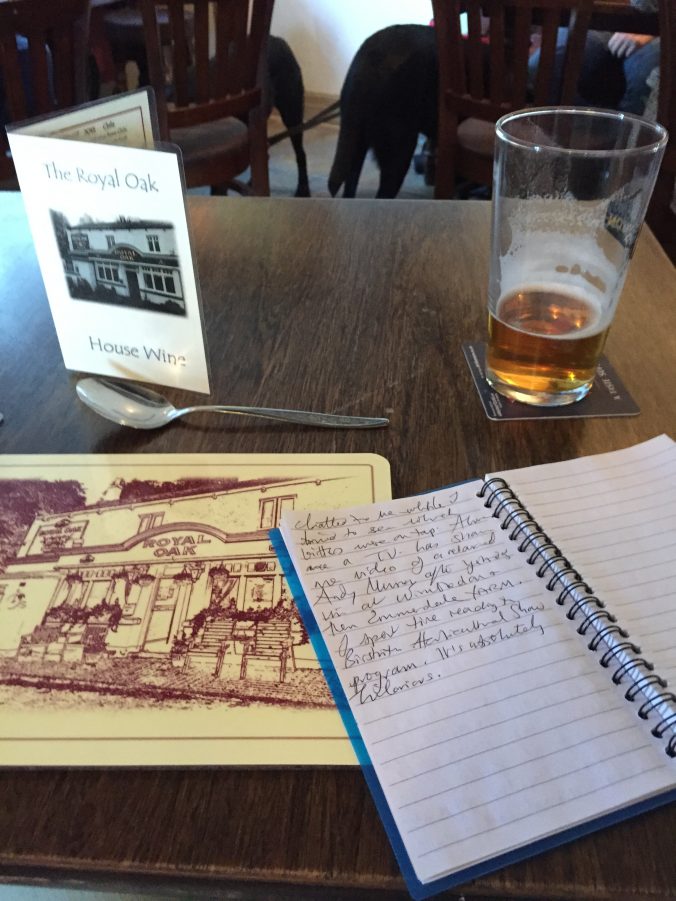 The Royal Oak
ROYAL
OAK
House Wine
ROYAL
OAK
chatted to me while I
tried to see which
bitters were on tap. Above
me a TV. has
me video of a relaxed
Andy Murray after yesterdays
win at Wimbledon
then Emmerdale Farm.
I spent time reading
Horticultural Show
program. It's absolutely
hilarious.